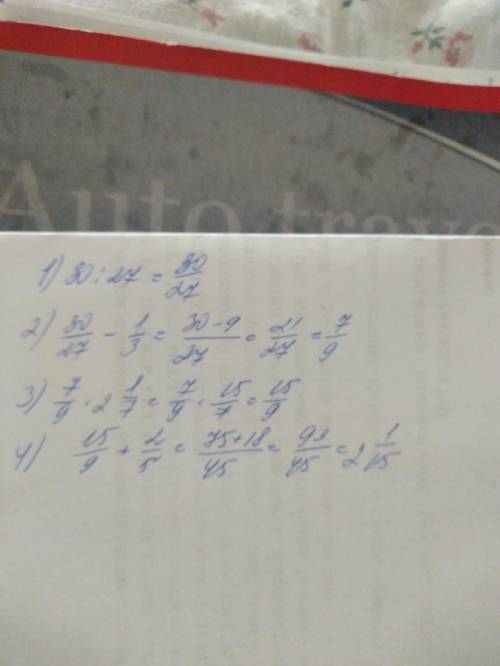 Auto trave
1) 30 : 27 = 30/27
2) 30/27 - 1/3 = 30-9/27 = 21/27 = 7/9
3) 7/9 · 2 1/7 = 7/9 · 15/7 = 15/9
4) 15/9 + 2/5 = 75+18/45 = 93/45 = 2 1/15